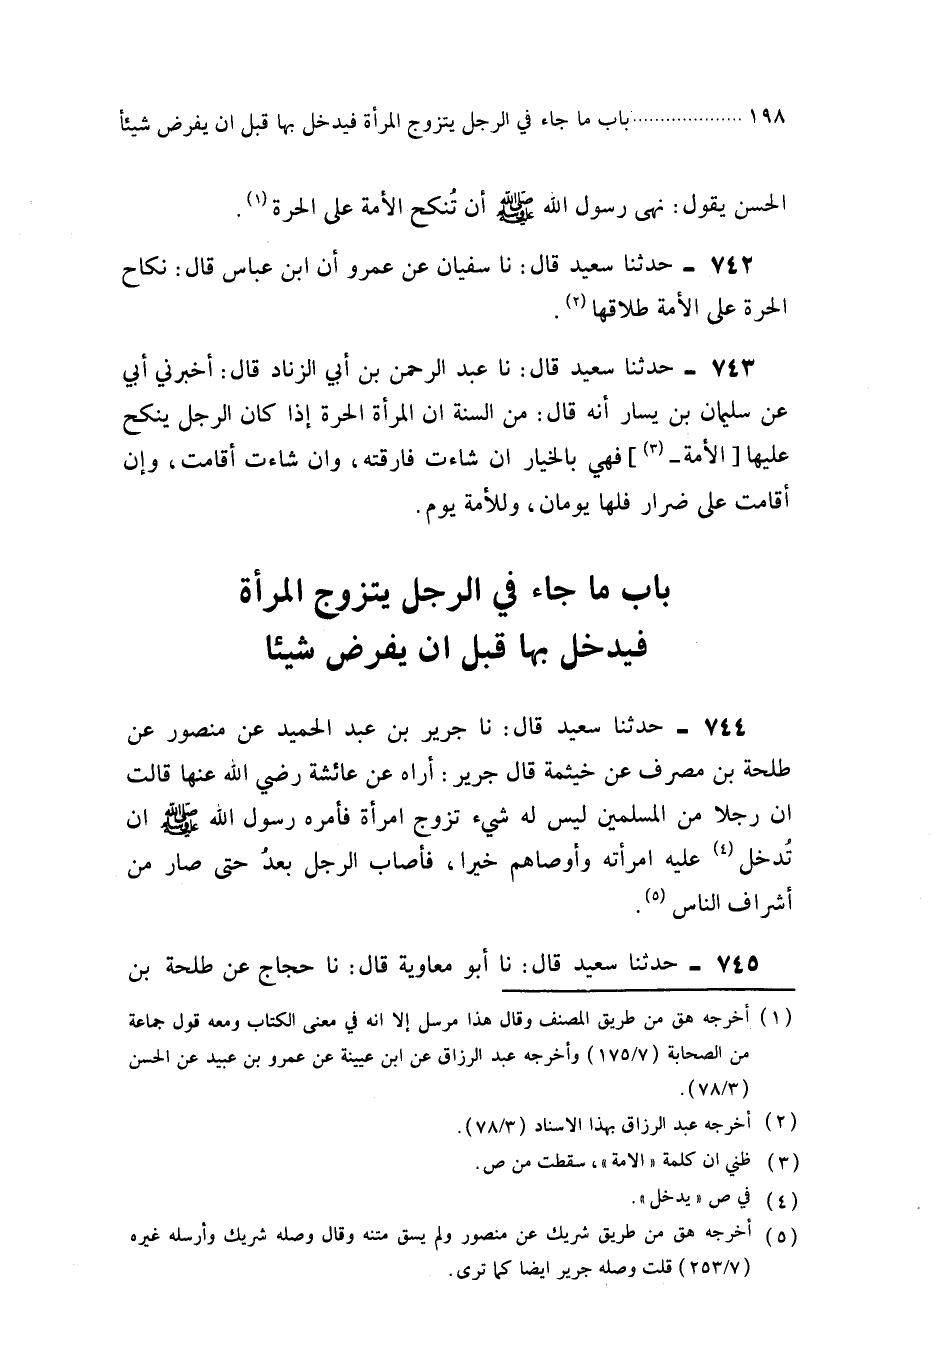 ١٩٨ ..................... باب ما جاء في الرجل يتزوج المرأة فيدخل بها قبل ان يفرض شيئاً
الحسن يقول: نهى رسول الله ﷺ أن تُنكح الأمة على الحرة (١).
٧٤٢ ـ حدثنا سعيد قال: نا سفيان عن عمرو أن ابن عباس قال: نكاح
الحرة على الأمة طلاقها (٢).
٧٤٣ ـ حدثنا سعيد قال: نا عبد الرحمن بن أبي الزناد قال: أخبرني أبي
عن سليمان بن يسار أنه قال: من السنة ان المرأة الحرة إذا كان الرجل ينكح
عليها [ الأمة ـ (٣) ] فهي بالخيار ان شاءت فارقته، وان شاءت أقامت، وإن
أقامت على ضرار فلها يومان، وللأمة يوم.
باب ما جاء في الرجل يتزوج المرأة
فيدخل بها قبل ان يفرض شيئا
٧٤٤ ـ حدثنا سعيد قال: نا جرير بن عبد الحميد عن منصور عن
طلحة بن مصرف عن خيثمة قال جرير: أراه عن عائشة رضي الله عنها قالت
ان رجلا من المسلمين ليس له شيء تزوج امرأة فأمره رسول الله ﷺ ان
تُدخل (٤) عليه امرأته وأوصاهم خيرا، فأصاب الرجل بعدُ حتى صار من
أشراف الناس (٥).
٧٤٥ ـ حدثنا سعيد قال: نا أبو معاوية قال: نا حجاج عن طلحة بن
(١) أخرجه هق من طريق المصنف وقال هذا مرسل إلا انه في معنى الكتاب ومعه قول جماعة
من الصحابة (١٧٥/٧) وأخرجه عبد الرزاق عن ابن عيينة عن عمرو بن عبيد عن الحسن
(٧٨/٣).
(٢) أخرجه عبد الرزاق بهذا الاسناد (٧٨/٣).
(٣) ظني ان كلمة «الامة»، سقطت من ص.
(٤) في ص «يدخل».
(٥) أخرجه هق من طريق شريك عن منصور ولم يسق متنه وقال وصله شريك وأرسله غيره
(٢٥٣/٧) قلت وصله جرير ايضا كما ترى.